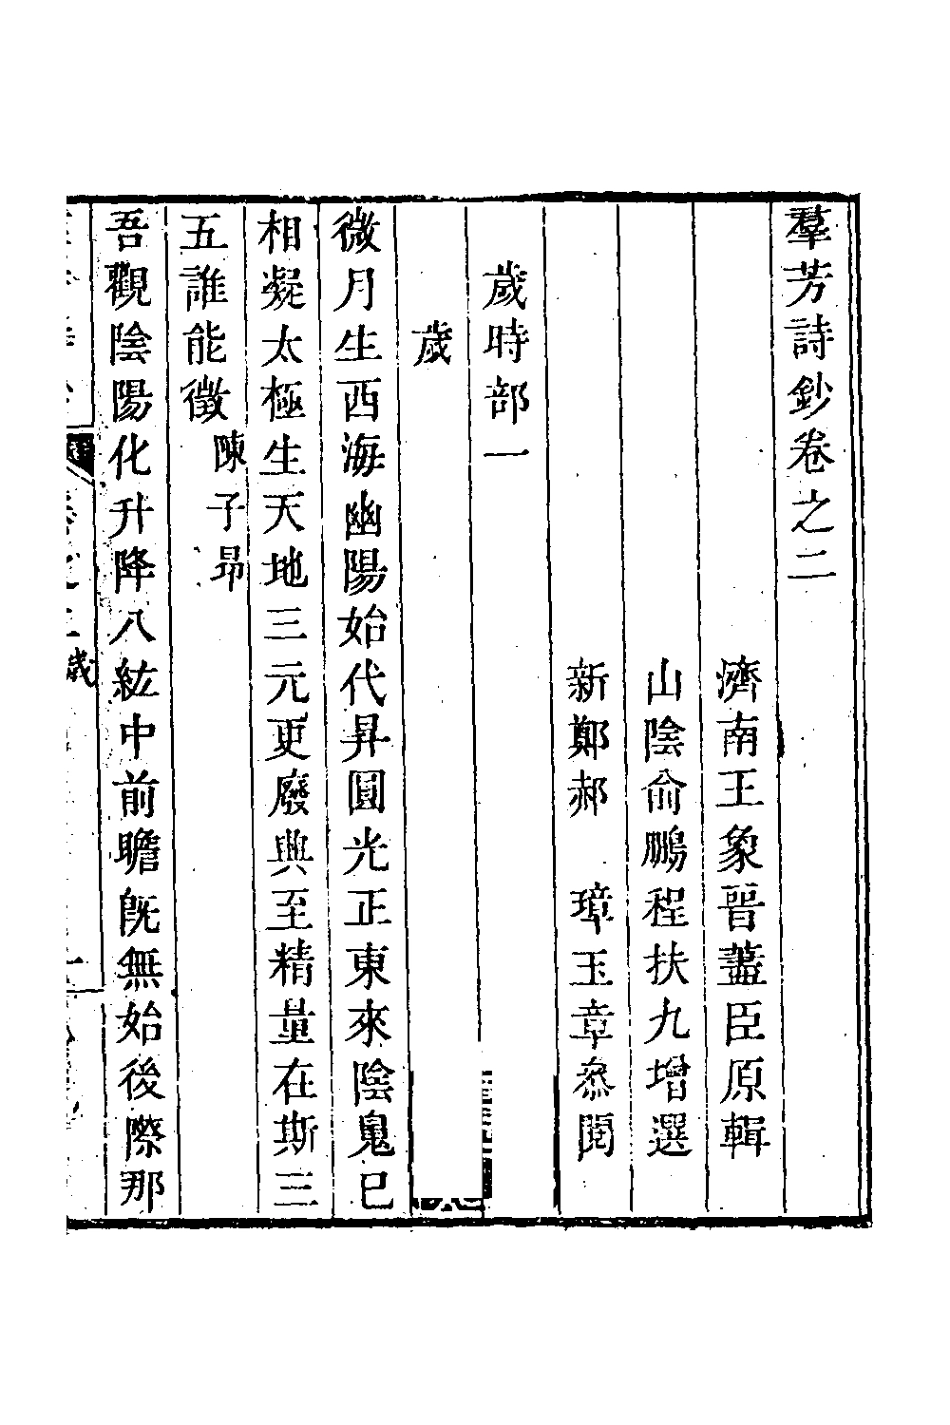 羣芳詩鈔卷之二
濟南王象晉藎臣原輯
山陰俞鵬程扶九增選
新鄭郝　璋玉章叅閱
歲時部一
歲
微月生西海幽陽始代昇圓光正東來陰鬼已
相凝太極生天地三元更廢興至精量在斯三
五誰能徵陳子昂
吾觀陰陽化升降八紘中前瞻旣無始後際那